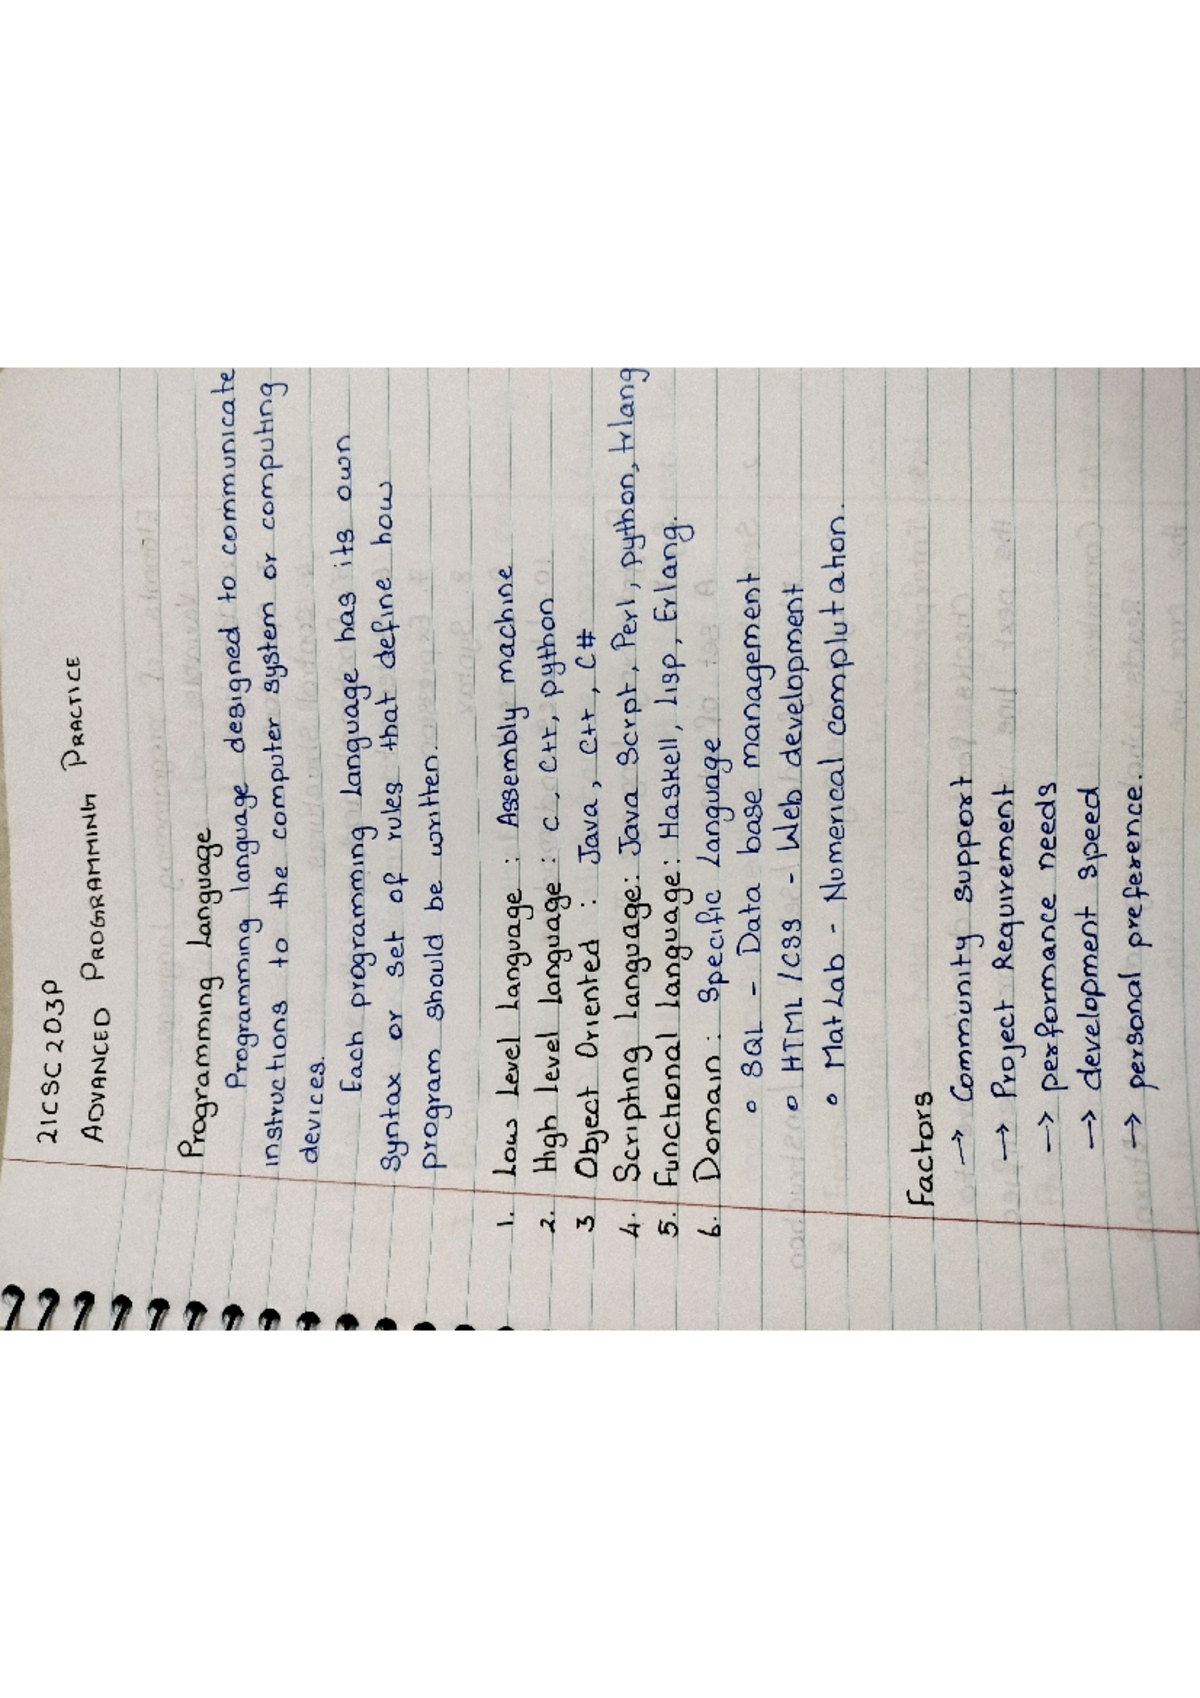 21CSC203P
ADVANCED PROGRAMMING PRACTICE
Programming Language
Programming language designed to communicate
instructions to the computer system or computing
devices.
Each programming language has its own
syntax or set of rules that define how
program should be written.
1. Low Level Language : Assembly machine
2. High level language : C, C++, python
3 Object Oriented : Java, C++, C#
4. Scripting Language: Java Scrpt, Perl, python, trlang
5. Functional Language: Haskell, Lisp, Erlang.
6. Domain: Specific Language
o SQL - Data base management
o HTML/CSS - Web development
o MatLab - Numerical complutation.
Factors
→ Community support
→ Project Requirement
→ performance needs
→ development speed
→ personal preference.